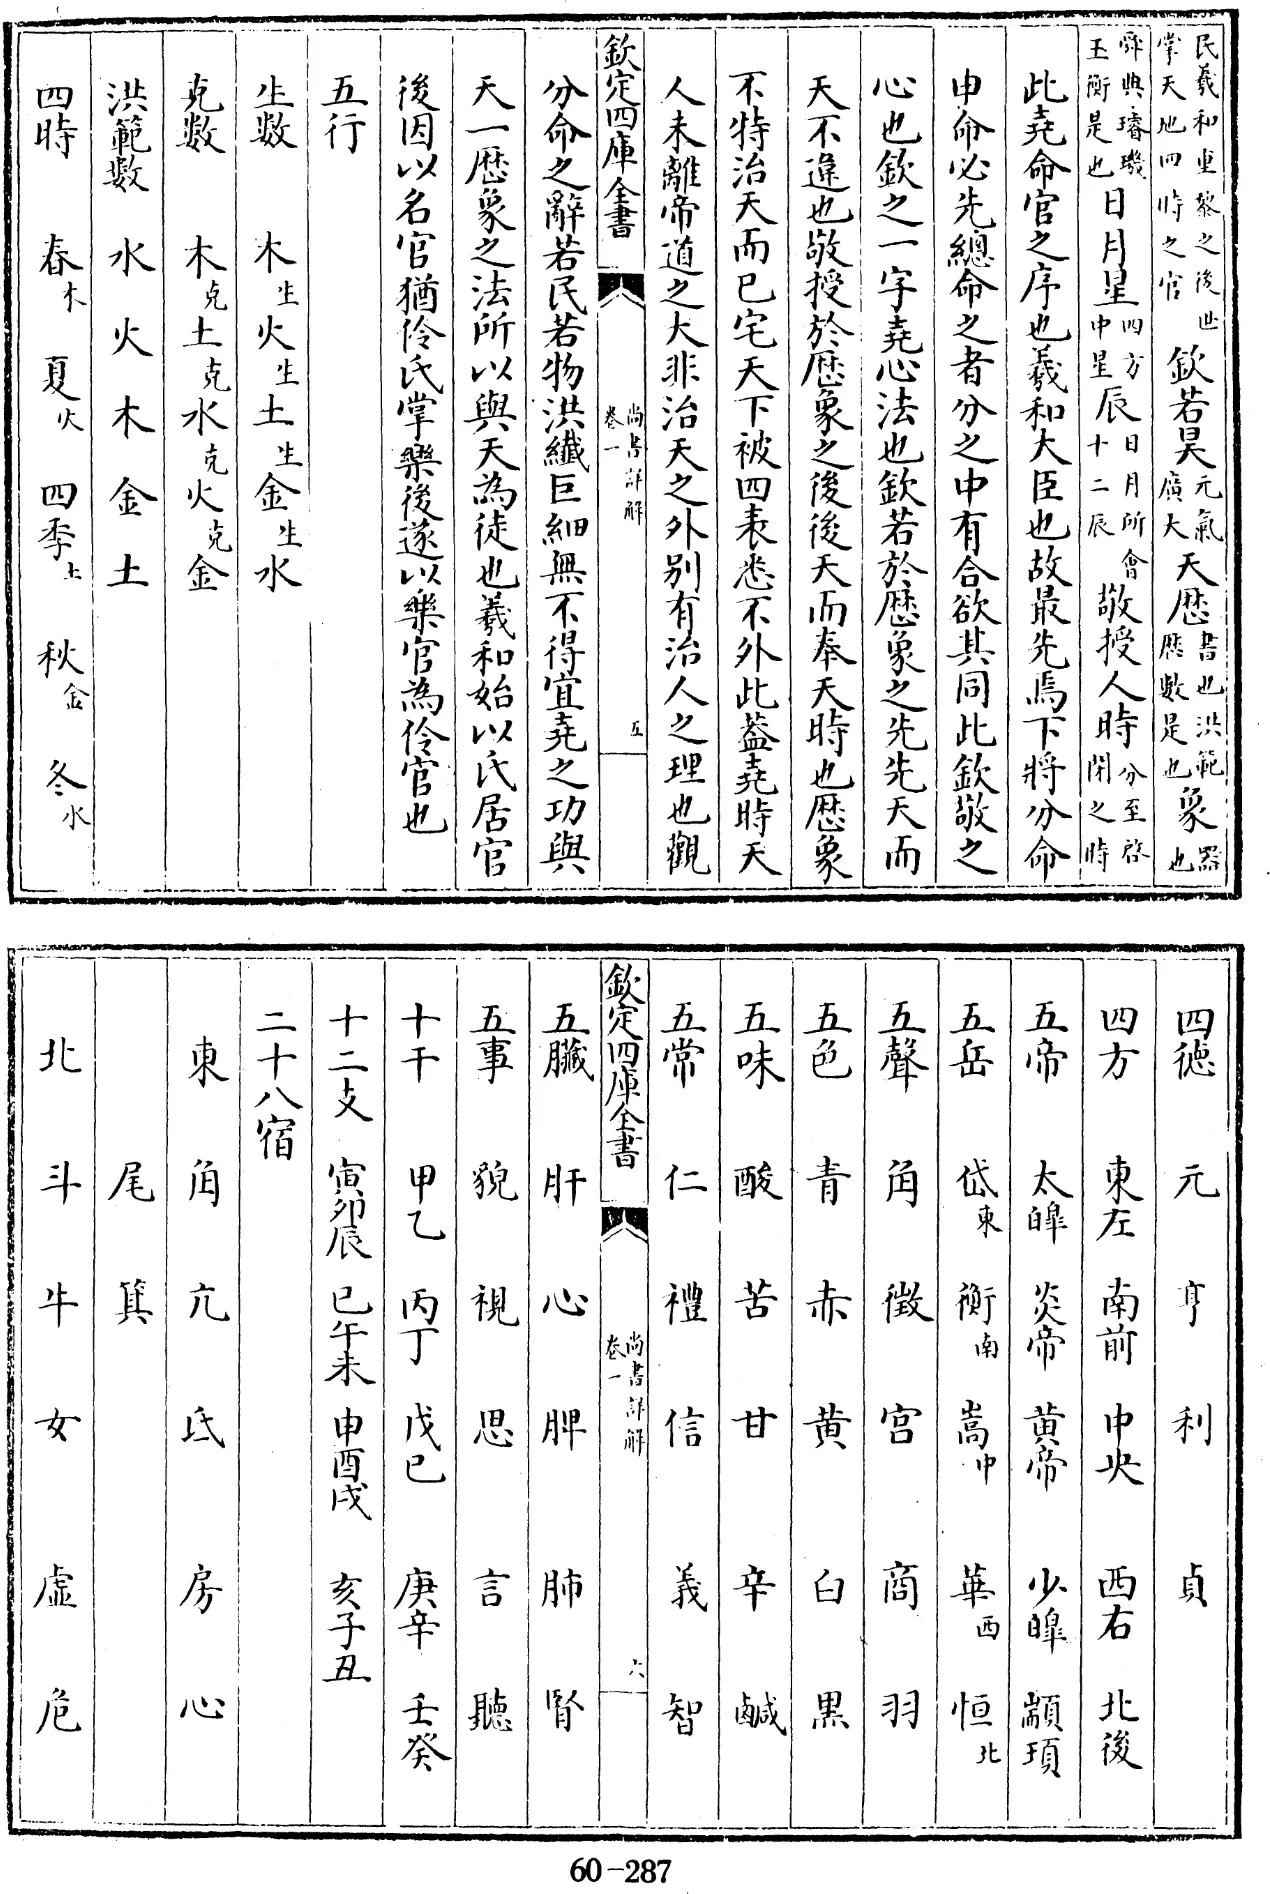 民羲和重黎之後世掌天地四時之官欽若昊元氣廣大天歴書也洪範歴數是也象器也
舜典璿璣玉衡是也日月星四方中星辰日月所會十二辰敬授人時分至啓閉之時
此堯命官之序也羲和大臣也故最先焉下將分命
申命必先總命之者分之中有合欲其同此欽敬之
心也欽之一字堯心法也欽若於歴象之先先天而
天不違也敬授於歴象之後後天而奉天時也歴象
不特治天而已宅天下被四表悉不外此蓋堯時天
人未離帝道之大非治天之外别有治人之理也觀
欽定四庫全書 尚書詳解 卷一 五
分命之辭若民若物洪纎巨細無不得宜堯之功與
天一歴象之法所以與天為徒也羲和始以氏居官
後因以名官猶伶氏掌樂後遂以樂官為伶官也
五行
生數 木生火生土生金生水
克數 木克土克水克火克金
洪範數 水 火 木 金 土
四時 春木 夏火 四季土 秋金 冬水
四德 元 亨 利 貞
四方 東左 南前 中央 西右 北後
五帝 太皥 炎帝 黄帝 少皥 顓頊
五岳 岱東 衡南 嵩中 華西 恒北
五聲 角 徵 宫 商 羽
五色 青 赤 黄 白 黒
五味 酸 苦 甘 辛 鹹
五常 仁 禮 信 義 智
欽定四庫全書 尚書詳解 卷一 六
五臟 肝 心 脾 肺 腎
五事 貌 視 思 言 聽
十干 甲乙 丙丁 戊己 庚辛 壬癸
十二支 寅卯辰 巳午未 申酉戌 亥子丑
二十八宿
東 角 亢 氐 房 心
尾 箕
北 斗 牛 女 虚 危
60-287